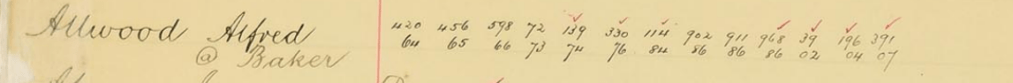 Allwood Alfred 420 456 598 72 139 330 114 902 911 968 39 196 391
@ Baker 64 65 66 73 74 76 84 86 86 86 02 04 07